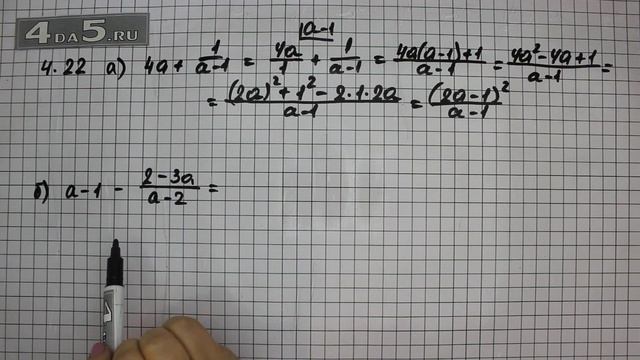 4DA5.RU
|a-1
4.22 а) 4a + \frac{1}{a-1} = \frac{4a}{1} + \frac{1}{a-1} = \frac{4a(a-1)+1}{a-1} = \frac{4a²-4a+1}{a-1} =
= \frac{(2a)²+1²-2·1·2a}{a-1} = \frac{(2a-1)²}{a-1}
б) a-1 - \frac{2-3a}{a-2} =